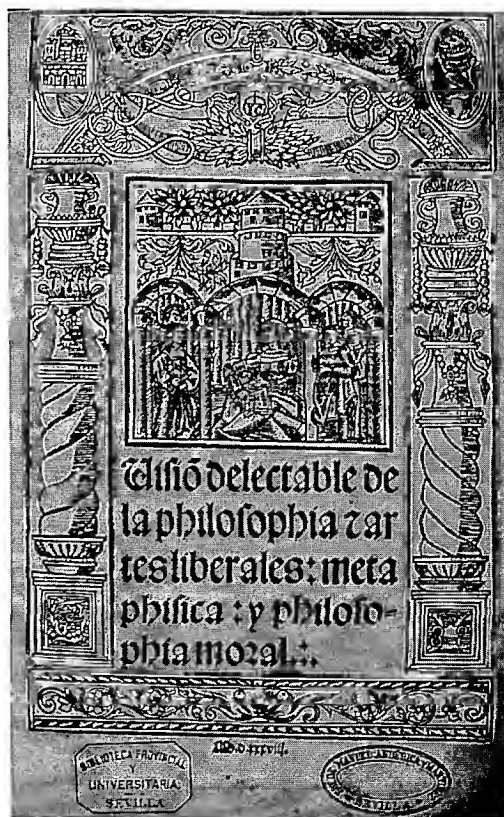 Uisiõ delectable de
la philosophia ⁊ ar
tes liberales: meta
phisica: y philoso-
phia moral.:.
M.D.xxxviij.
BIBLIOTECA PROVINCIAL
Y
UNIVERSITARIA
SEVILLA
SEVILLA